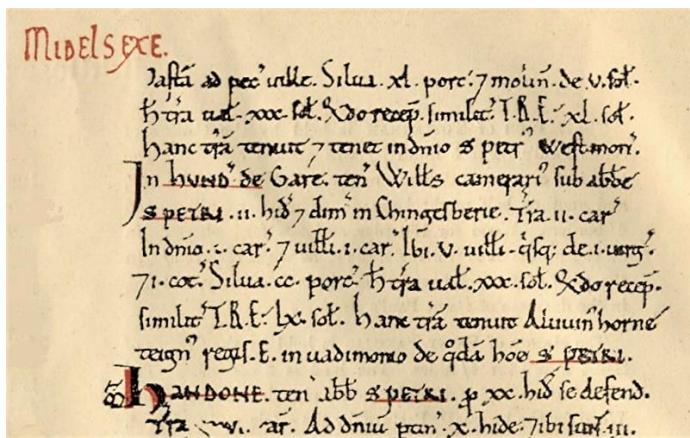 MIDELSEXE.
Pastã ad pec̃ uillę. Silua . xl . porc̉ ⁊ molin̄ . de . v . sol̃.
h̃ tr̃a ual̃ . xxx . sol̃. Q̃do recep̃. similit̉. T.R.E: xl . sol̃.
hanc tr̃ã tenuit ⁊ tenet in dñio S petr᾽ Westmon̉.
In HUND᾽ de Gare. ten̉ Will̃s camerari᾽ sub abb̃e
S PETRI . ii . hid᾽ ⁊ dim̉ in Chingesberie. Tr̃a . ii . car̉
In dñio . i . car̉ ⁊ uill̃i . i . car̉. Ibi . v . uill̃i . q̃sq; de . i . uirg᾽.
⁊ i . cot̉. Silua . cc . porc̉. h̃ tr̃a ual̃ . xxx . sol̃. Q̃do recep̃.
similit̉. T.R.E: lx . sol̃. hanc tr̃ã tenuit Aluuin᾽ horne
teign᾽ regis . E . in uadimonio de q̃dã hõe S PETRI.
HANDONE. ten̉ abb̃ S PETRI. ꝓ xx . hid᾽ se defend̃.
Tr̃a . xvi . car̉. Ad dñiũ ptin̉ . x . hidę. ⁊ ibi sunt . iii .